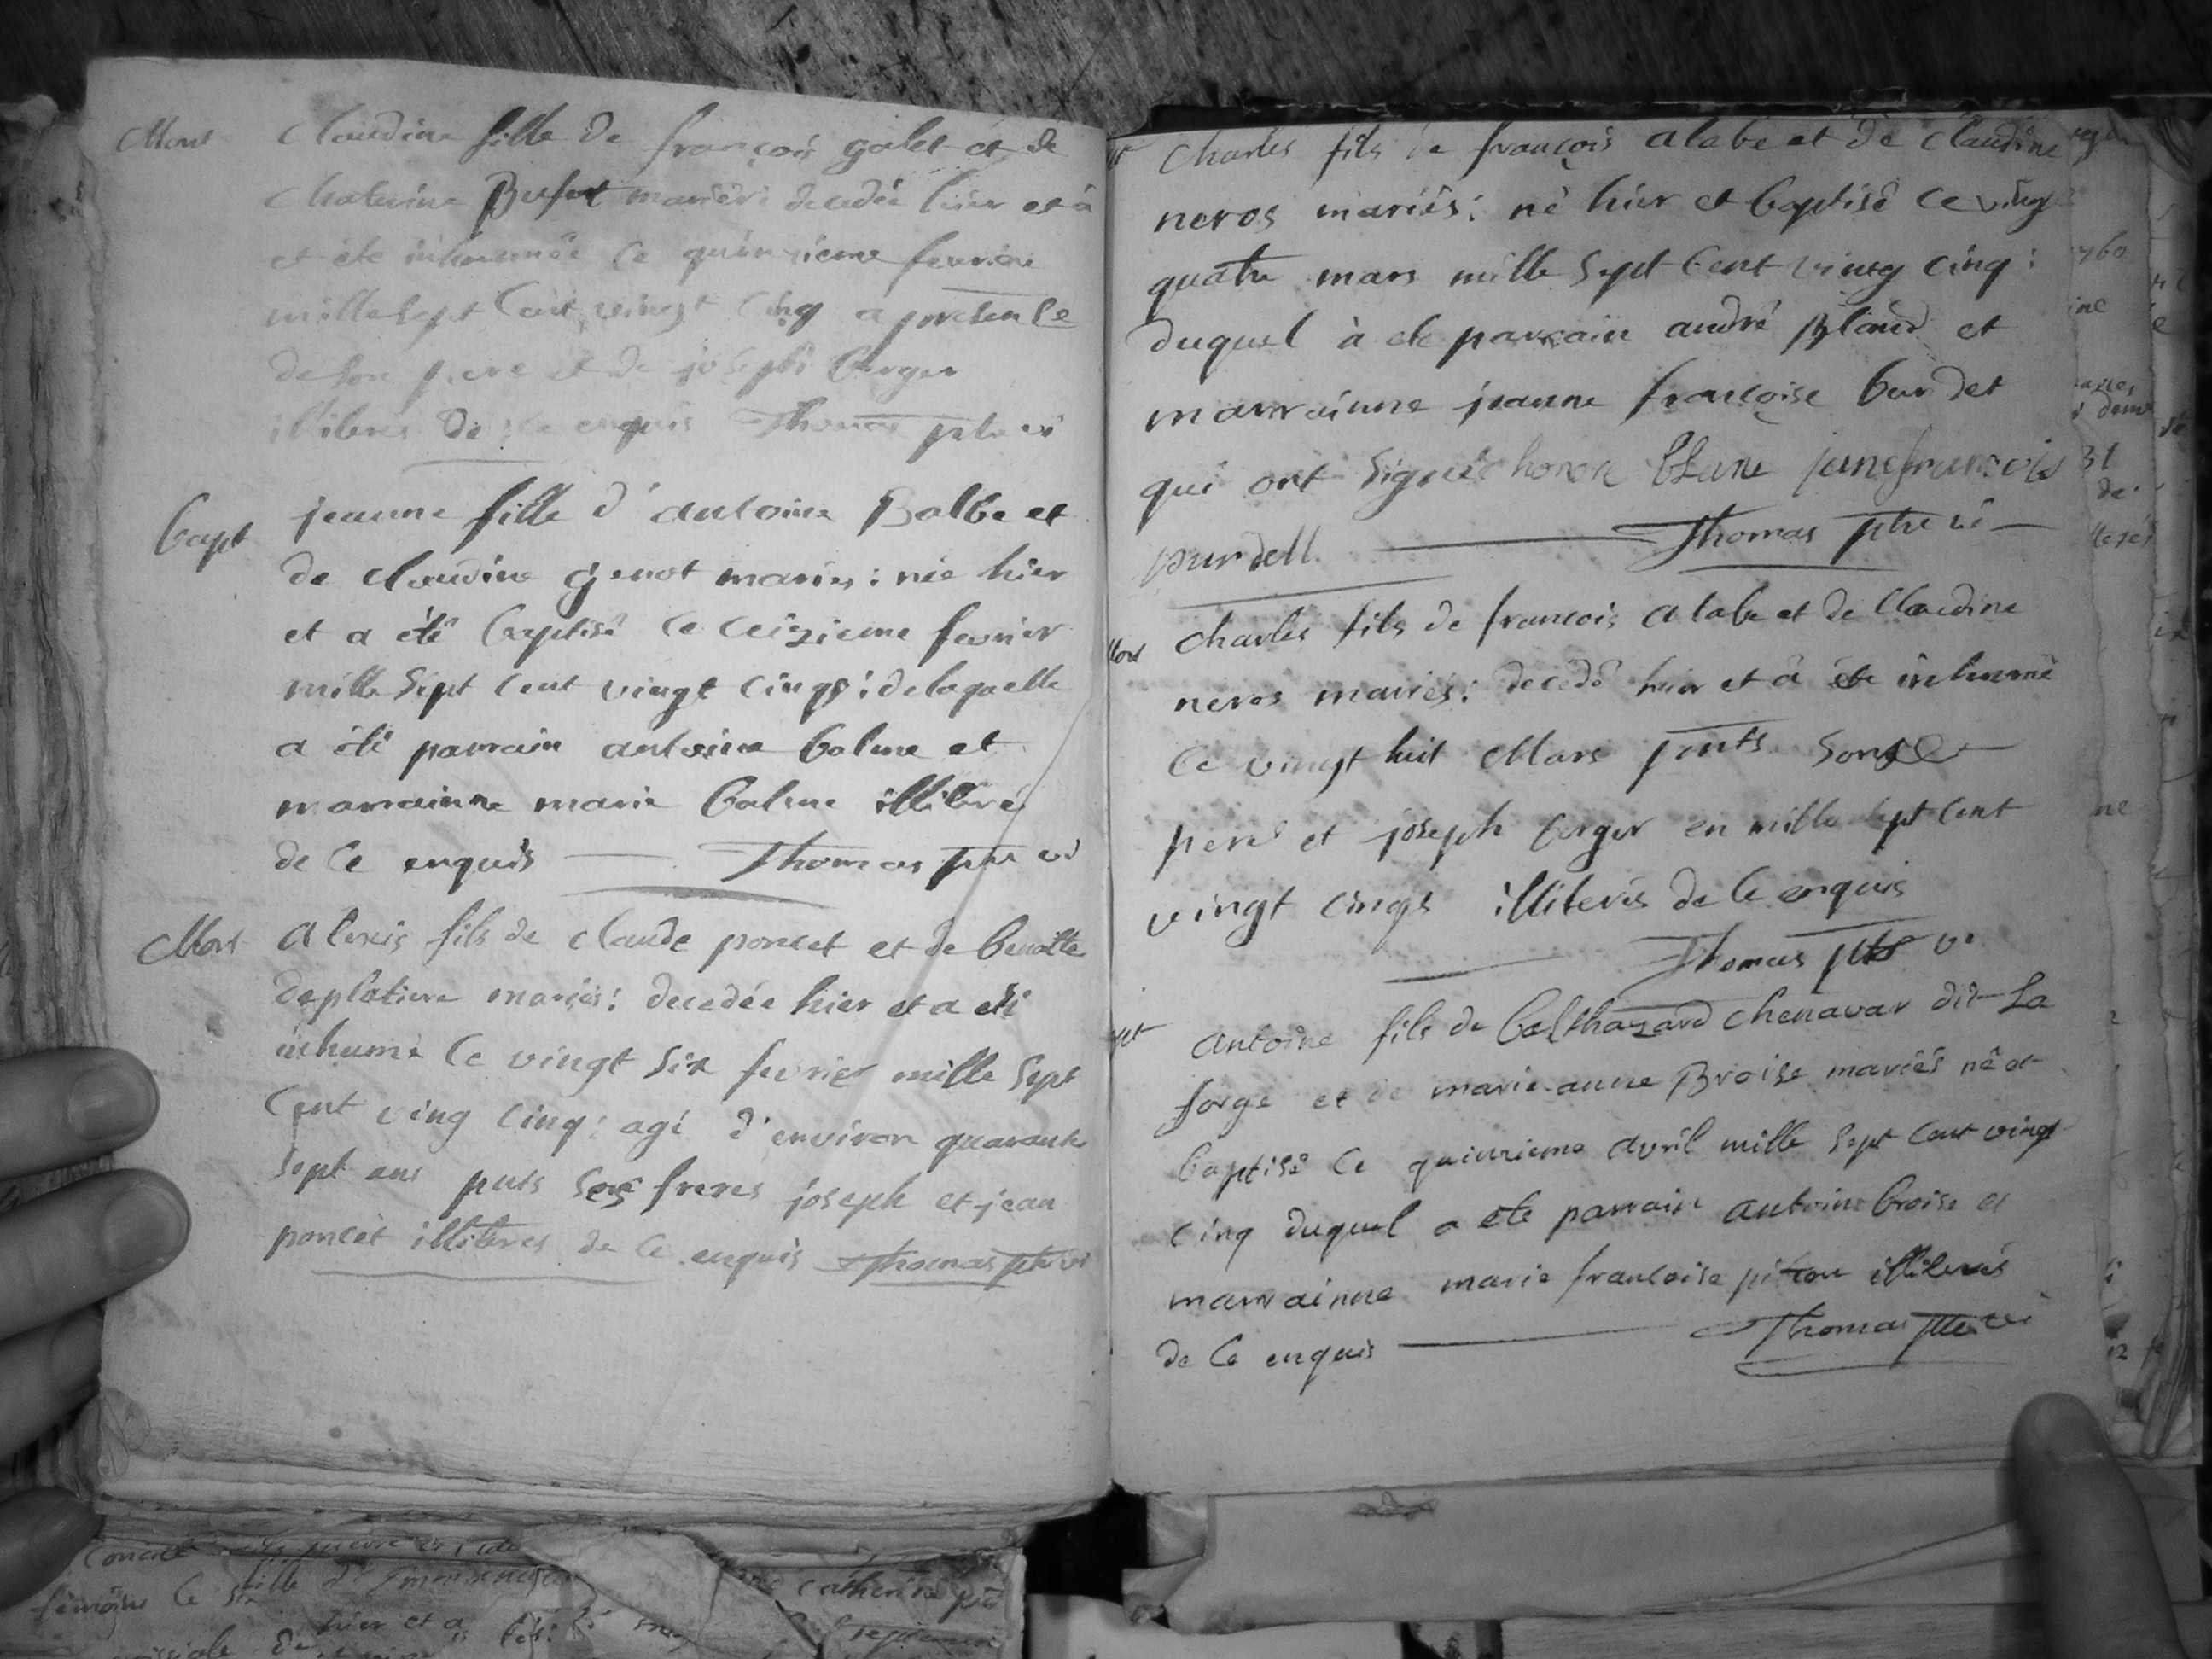 Mort Claudine fille de françois galet et de
Chaterine Bufet mariéés decedée hier et à
et été inhummée ce quinzieme fevrier
mille sept Cent vingt Cinq a presence
de son pere et de joseph berger
illiteres de ce enquis Thomas ptre vi
bapt jeanne fille d'antoine Balbe et
de claudine genot maries: née hier
et a été baptisé ce ceizieme fevrier
mille sept Cent vingt cinqs: delaquelle
a été parrain antoine balme et
marrainne marie balme illiteré
de Ce enquis Thomas ptre vi
Mort Alexis fils de claude poncet et de benoitte
deplatiere mariés: decedée hier et a eté
inhumé Ce vingt six fevrier mille sept
Cent ving Cinq: agé d'environ quarante
sept ans pnts ses freres joseph et jean
poncet illiteres de Ce enquis Thomas ptre vi
Charles fils de francois alabe et de Claudine
neros mariés: né hier et baptisé ce ving
quatre mars mille sept Cent vingt cinq:
duquel à ete parrain andré Bland et
marrainne jeanne françoise burdet
qui ont signés honore blanc jane francois
burdell Thomas ptre vi
Mort Charles fils de francois alabe et de Claudine
neros mariés: decedé hier et à été inhumé
Ce vingt huit Mars pnts son
pere et joseph berger en mille sept Cent
vingt Cinqs illiterés de Ce enquis
Thomas ptre vi
Antoine fils de balthazard chenavar dit La
forge et de marie-anne Broise mariés né et
baptisé Ce quinzieme avril mille sept Cent vingt
Cinq duquel a ete parrain antoine broise et
marrainne marie francoise piton illiterés
de Ce enquis Thomas ptre vi
hier et a
catherine